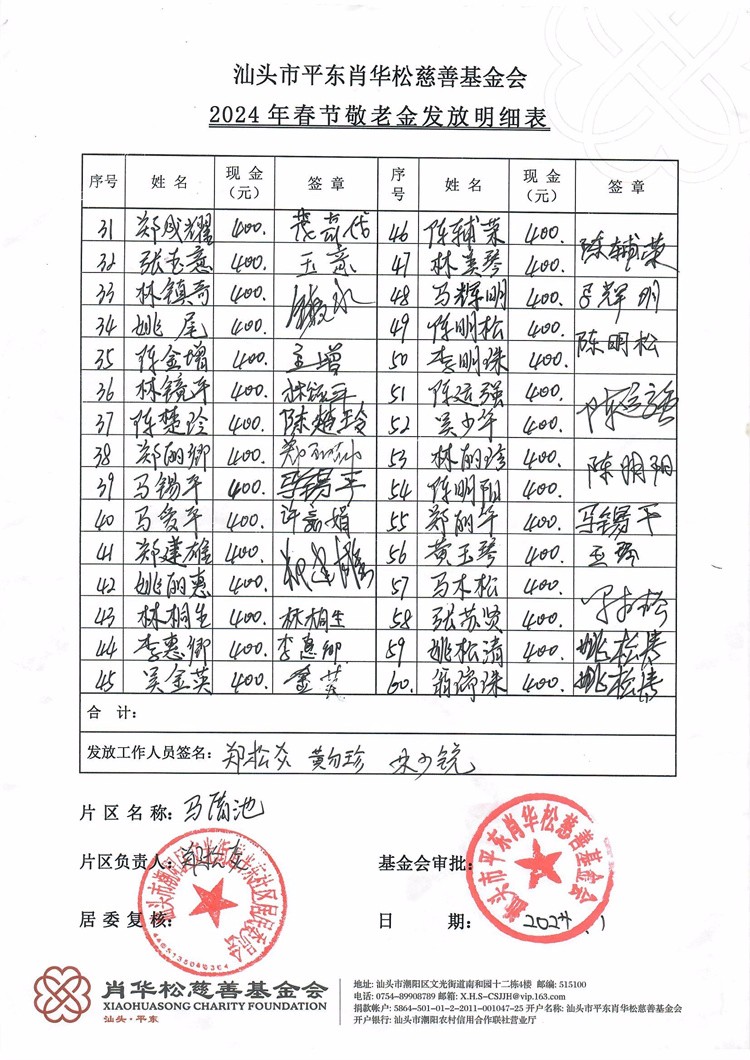 汕头市平东肖华松慈善基金会
2024年春节敬老金发放明细表
序号 姓名 现金（元） 签章 序号 姓名 现金（元） 签章
31 郑成耀 400. 46 陈辅荣 400. 陈辅荣
32 张志意 400. 玉意 47 林美琴 400.
33 林镇奇 400. 48 马辉明 400. 马辉明
34 姚尾 400. 49 陈明松 400. 陈明松
35 陈金增 400. 金增 50 李明珠 400.
36 林镜平 400. 林镜平 51 陈运强 400. 陈运强
37 陈楚玲 400. 陈楚玲 52 吴少华 400.
38 郑丽卿 400. 郑丽卿 53 林丽 400.
39 马锡平 400. 马锡平 54 陈明阳 400. 陈明阳
40 马爱平 400. 许嘉娟 55 郑丽华 400. 马锡平
41 郑建雄 400. 郑建雄 56 黄玉琴 400. 玉琴
42 姚丽惠 400. 57 马木松 400. 马木松
43 林桐生 400. 林桐生 58 张苏贤 400.
44 李惠卿 400. 李惠卿 59 姚松清 400. 姚松清
45 吴金英 400. 金英 60. 翁瑞珠 400. 姚松清
合计：
发放工作人员签名：郑松 黄 珍 林少锐
片区名称：马 池
片区负责人：郑松
基金会审批：
居委复核：
日期：2024.1
汕头市平东肖华松慈善基金会
肖华松慈善基金会
XIAOHUASONG CHARITY FOUNDATION
汕头·平东
地址: 汕头市潮阳区文光街道南和园十二栋4楼 邮编: 515100
电话: 0754-89908789 邮箱: X.H.S-CSJJH@vip.163.com
捐款帐户: 5864-501-01-2-2011-001047-25 开户名称: 汕头市平东肖华松慈善基金会
开户银行: 汕头市潮阳农村信用合作联社营业厅